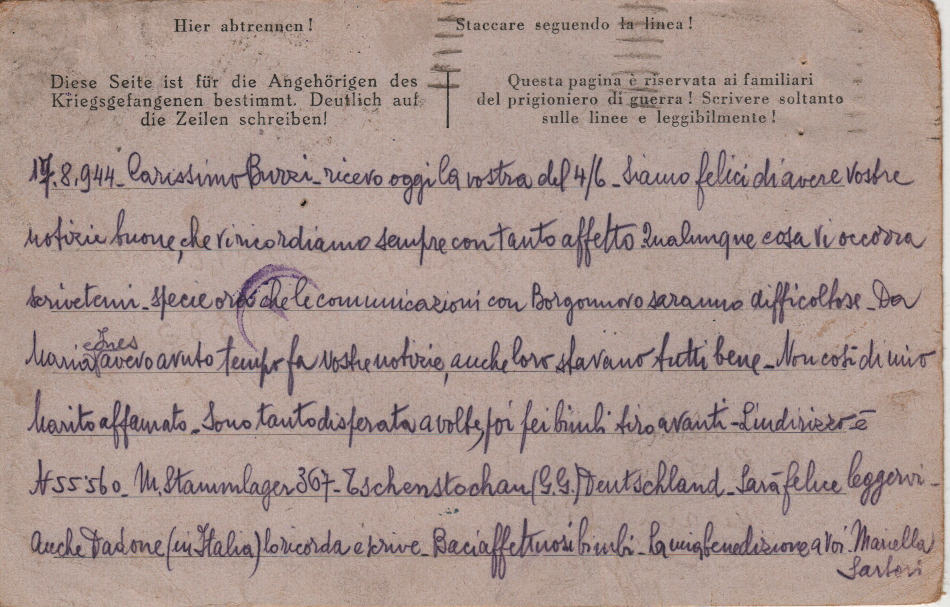 Hier abtrennen!
Staccare seguendo la linea!
Diese Seite ist für die Angehörigen des
Kriegsgefangenen bestimmt. Deutlich auf
die Zeilen schreiben!
Questa pagina è riservata ai familiari
del prigioniero di guerra! Scrivere soltanto
sulle linee e leggibilmente!
17.8.944_ Carissimo Buzzi_ ricevo oggi la vostra del 4/6_ Siamo felici di avere vostre
notizie buone, che vi ricordiamo sempre con tanto affetto. Qualunque cosa vi occorra
scrivetemi_ specie ora che le comunicazioni con Borgonovo saranno difficoltose_ Da
Maria e Ines avevo avuto tempo fa vostre notizie, anche loro stavano tutti bene_ Non così di mio
Marito affamato_ Sono tanto disperata a volte, poi pei bimbi tiro avanti_ L'indirizzo è
N 55560_ M. Stammlager 367_ Tschenstochau (G.G.) Deutschland_ Sarà felice leggervi_
Anche (in Italia) lo ricorda e scrive_ Baci affettuosi bimbi_ La mia benedizione a voi. Mariella
Sartori